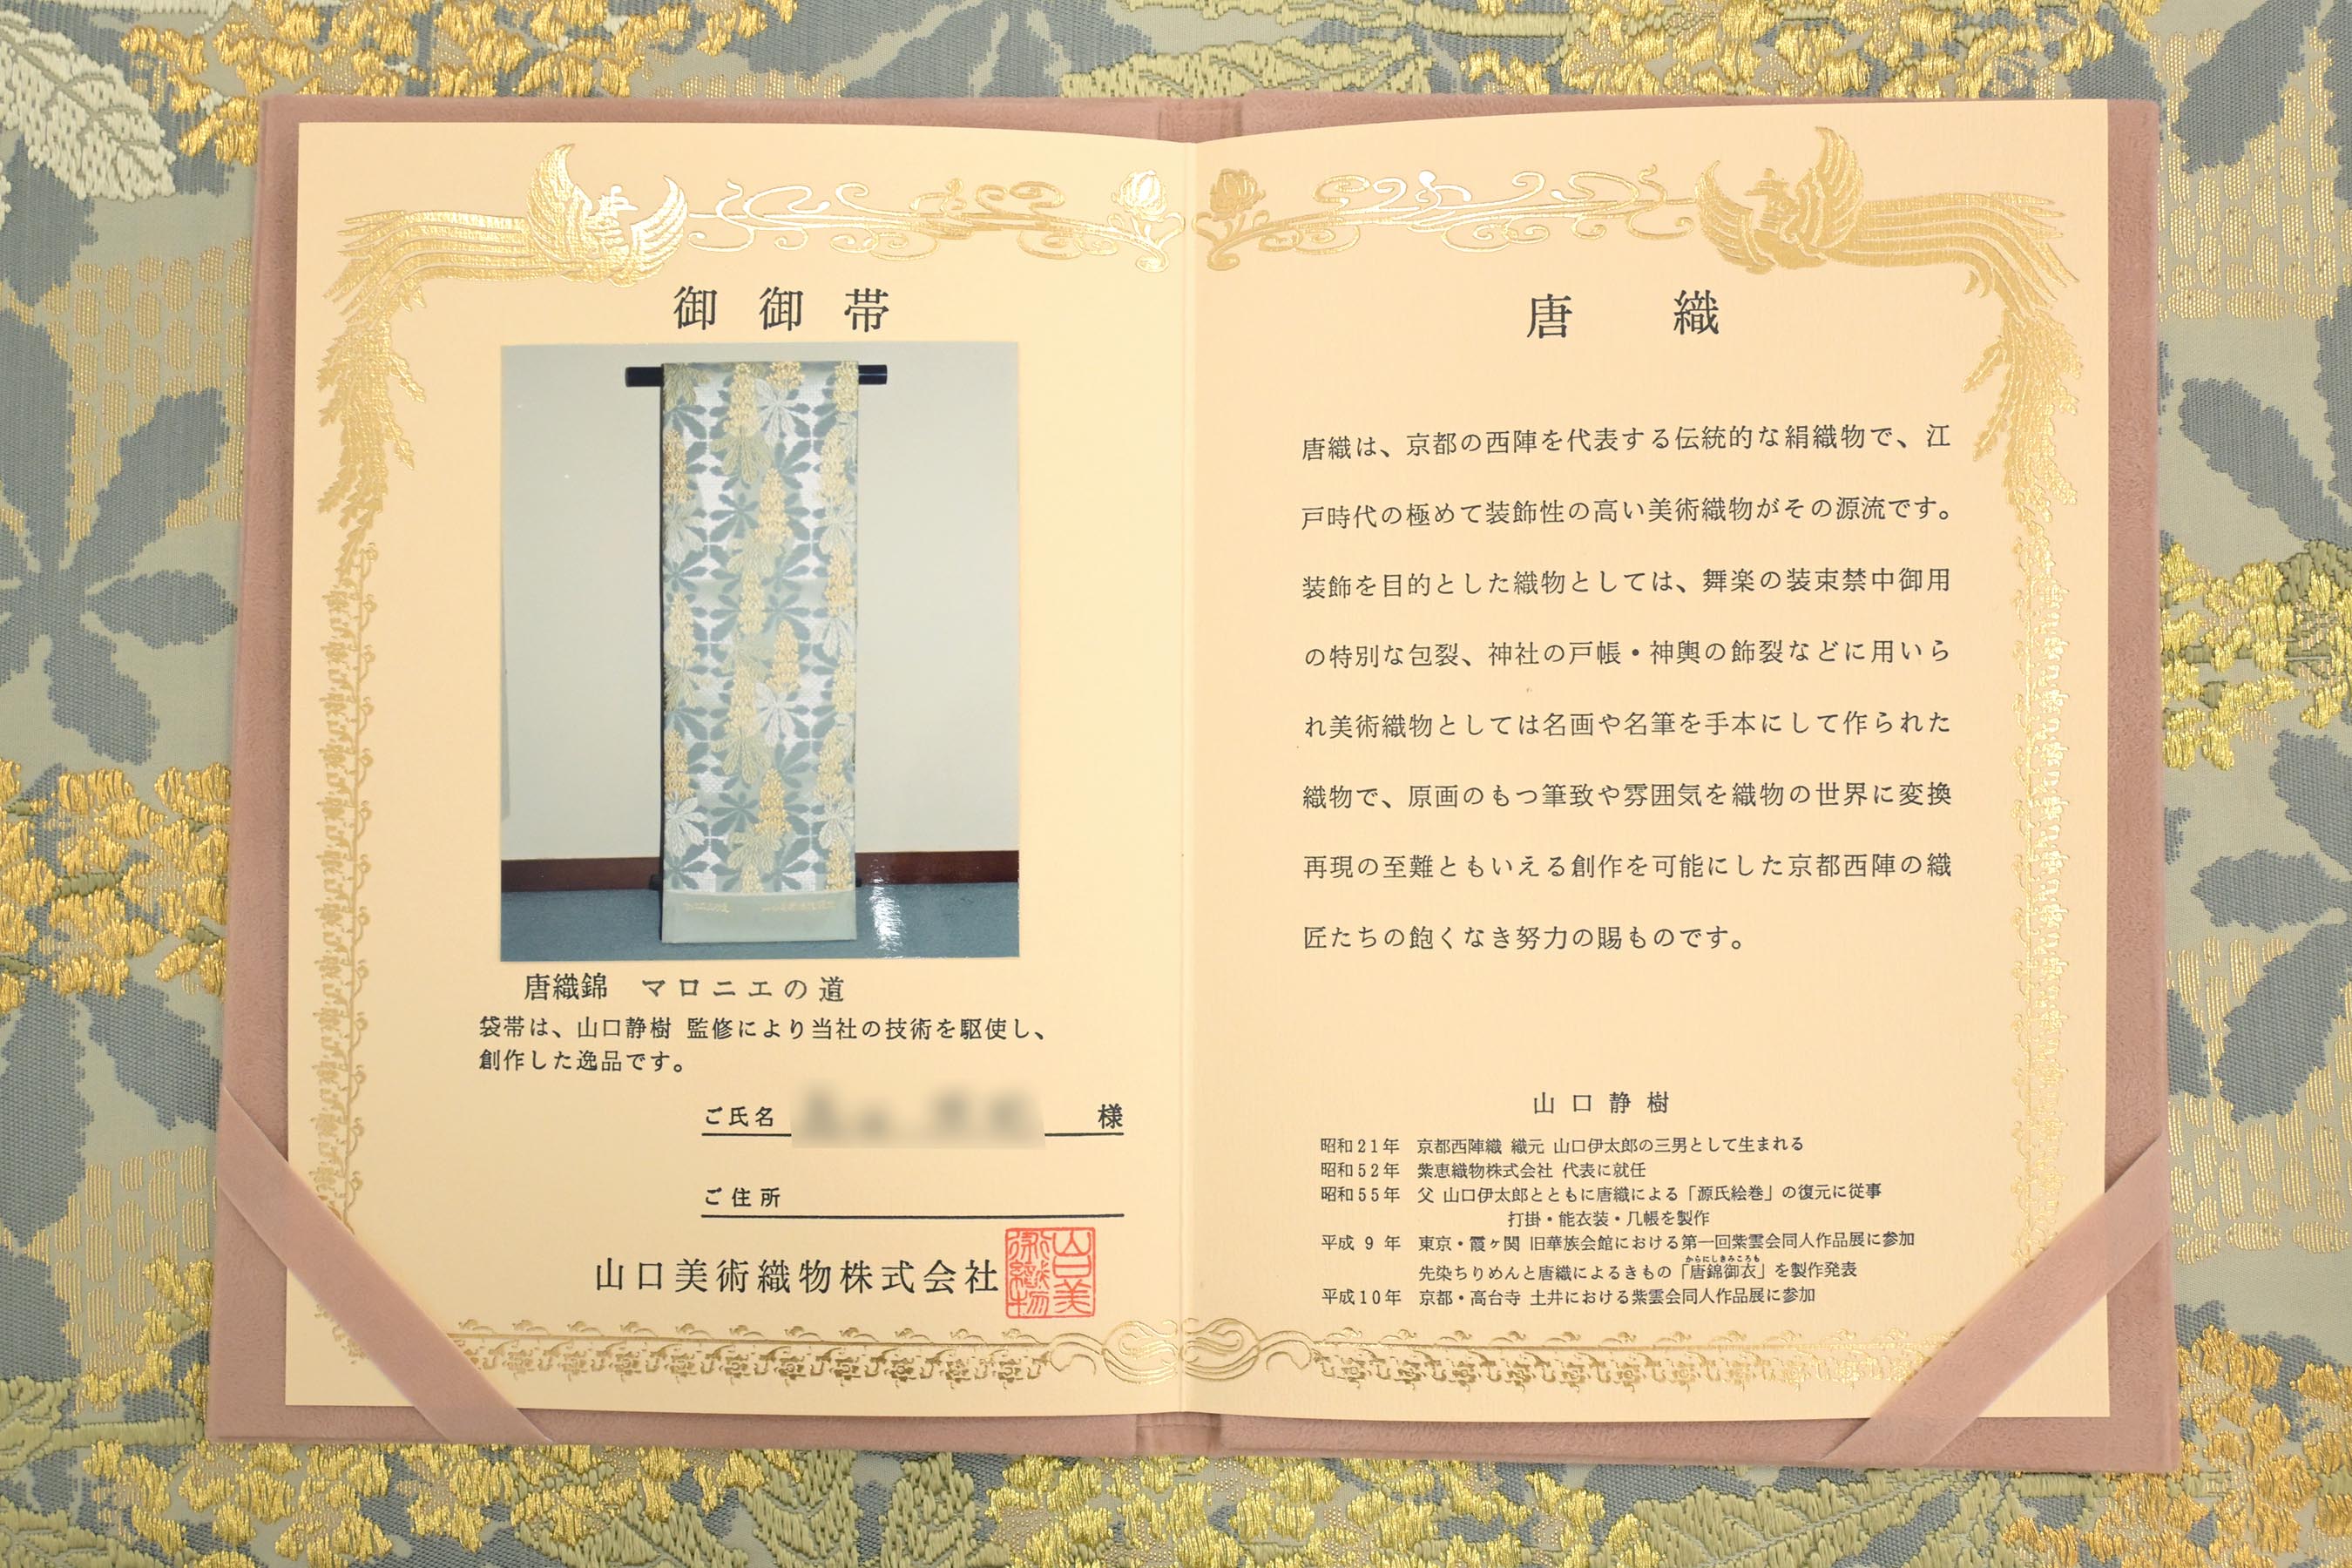 御御帯
唐織錦 マロニエの道
袋帯は、山口静樹 監修により当社の技術を駆使し、
創作した逸品です。
ご氏名 様
ご住所
山口美術織物株式会社
唐織
唐織は、京都の西陣を代表する伝統的な絹織物で、江
戸時代の極めて装飾性の高い美術織物がその源流です。
装飾を目的とした織物としては、舞楽の装束禁中御用
の特別な包裂、神社の戸帳・神輿の飾裂などに用いら
れ美術織物としては名画や名筆を手本にして作られた
織物で、原画のもつ筆致や雰囲気を織物の世界に変換
再現の至難ともいえる創作を可能にした京都西陣の織
匠たちの飽くなき努力の賜ものです。
山口静樹
昭和21年 京都西陣織 織元 山口伊太郎の三男として生まれる
昭和52年 紫恵織物株式会社 代表に就任
昭和55年 父 山口伊太郎とともに唐織による「源氏絵巻」の復元に従事
打掛・能衣装・几帳を製作
平成9年 東京・霞ヶ関 旧華族会館における第一回紫雲会同人作品展に参加
からにしきみころも
先染ちりめんと唐織によるきもの「唐錦御衣」を製作発表
平成10年 京都・高台寺 土井における紫雲会同人作品展に参加